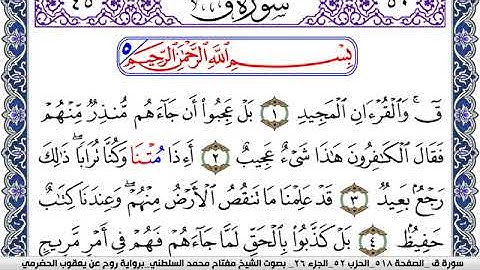 سورة ق
بِسْمِ اللَّهِ الرَّحْمَٰنِ الرَّحِيمِ ٥
قٓ ۚ وَالْقُرْءَانِ الْمَجِيدِ ١ بَلْ عَجِبُوٓا۟ أَن جَآءَهُم مُّنذِرٌ مِّنْهُمْ
فَقَالَ الْكَٰفِرُونَ هَٰذَا شَىْءٌ عَجِيبٌ ٢ أَءِذَا مُتْنَا وَكُنَّا تُرَابًا ۖ ذَٰلِكَ
رَجْعٌۢ بَعِيدٌ ٣ قَدْ عَلِمْنَا مَا تَنقُصُ الْأَرْضُ مِنْهُمْ ۖ وَعِندَنَا كِتَٰبٌ
حَفِيظٌۢ ٤ بَلْ كَذَّبُوا۟ بِالْحَقِّ لَمَّا جَآءَهُمْ فَهُمْ فِىٓ أَمْرٍ مَّرِيجٍ
سورة ق_الصفحة ٥١٨_الحزب ٥٢_الجزء ٢٦_ بصوت الشيخ مفتاح محمد السلطني_برواية روح عن يعقوب الحضرمي